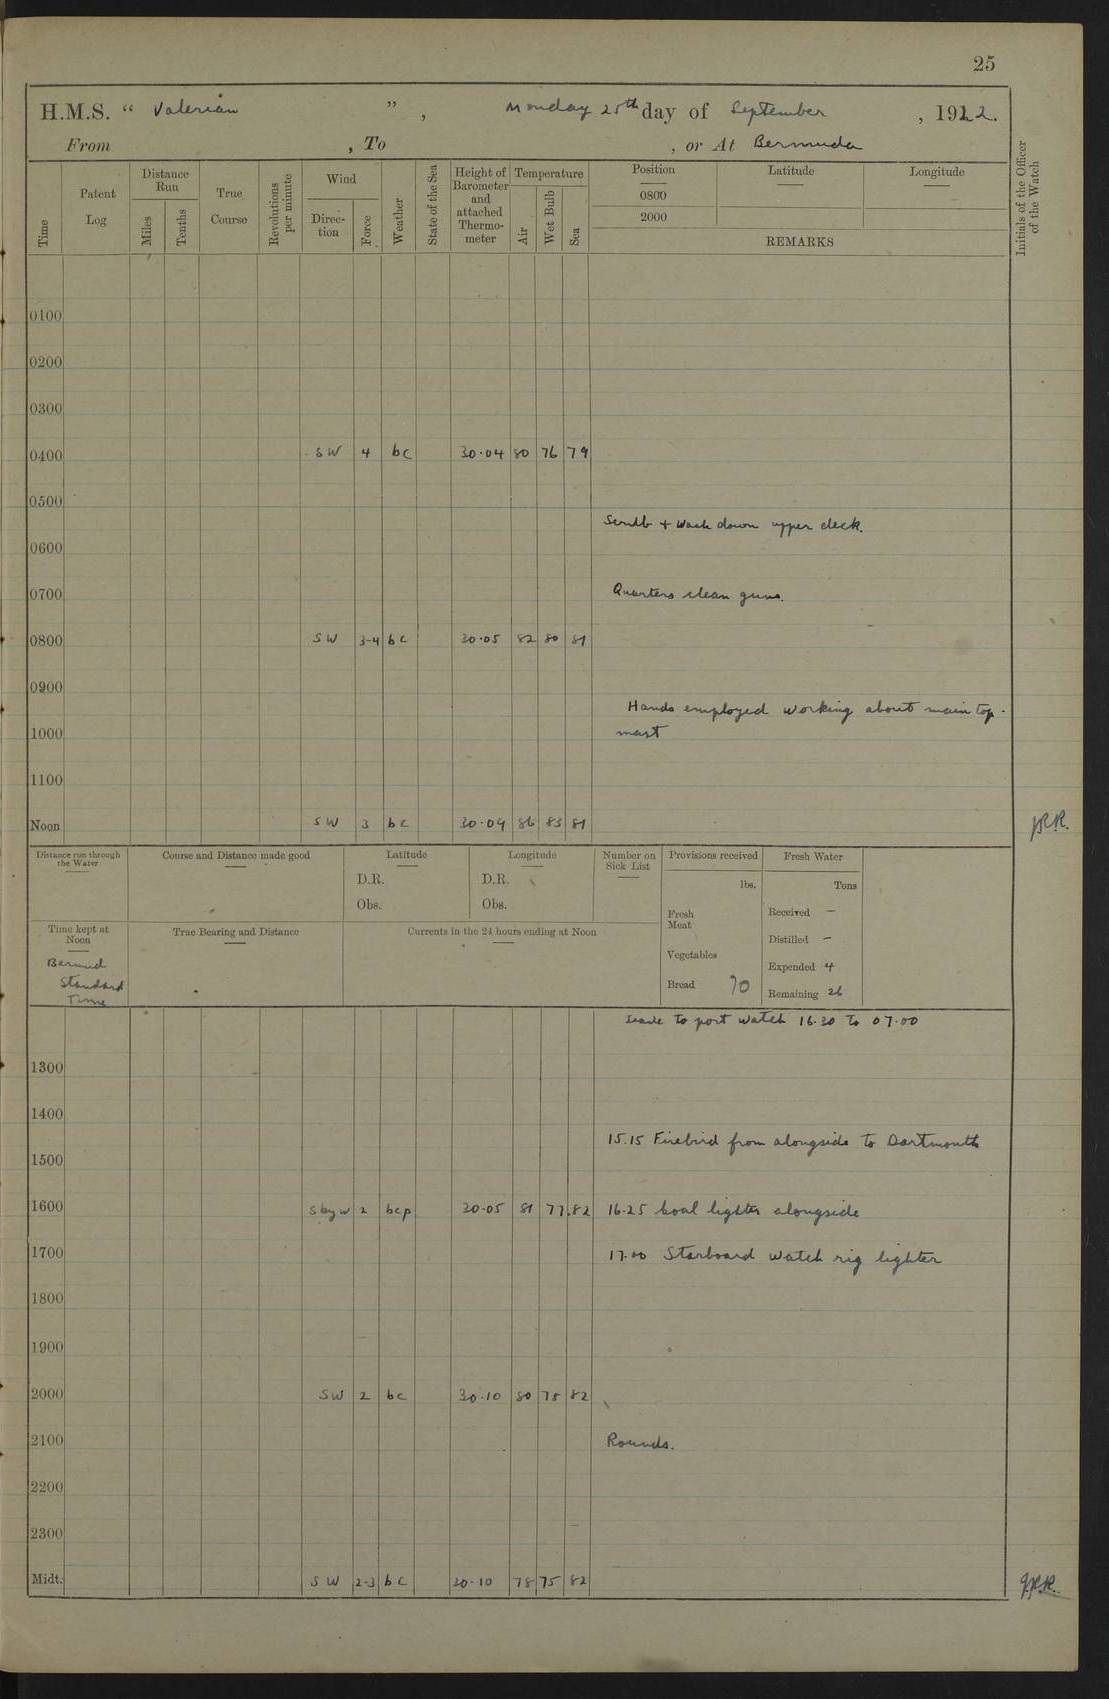 25
H.M.S. " Valerian ", Monday 25th day of September, 1922.
From , To , or At Bermuda
Time
Patent Log
Distance Run
Miles
Tenths
True Course
Revolutions per minute
Wind
Direction
Force
Weather
State of the Sea
Height of Barometer and attached Thermometer
Temperature
Air
Wet Bulb
Sea
Position
Latitude
Longitude
0800
2000
REMARKS
Initials of the Officer of the Watch
0100
0200
0300
0400 SW 4 bc 30.04 80 76 79
0500
Scrub + wash down upper deck.
0600
0700 Quarters clean guns.
0800 SW 3-4 bc 30.05 82 80 81
0900
Hands employed working about main top-
1000 mast
1100
Noon SW 3 bc 30.09 86 83 81
Distance run through the Water
Course and Distance made good
Latitude
D.R.
Obs.
Longitude
D.R.
Obs.
Number on Sick List
Provisions received
lbs.
Fresh Meat
Vegetables
Bread 70
Fresh Water
Tons
Received –
Distilled –
Expended 4
Remaining 26
Time kept at Noon
Bermud
Standard
Time
True Bearing and Distance
Currents in the 24 hours ending at Noon
Leave to port watch 16.30 to 07.00
1300
1400
15.15 Firebird from alongside to Dartmouth
1500
1600 S by W 2 bcp 30.05 81 77 82 16.25 Coal lighter alongside
1700 17.00 Starboard watch rig lighter
1800
1900
2000 SW 2 bc 30.10 80 78 82
2100 Rounds.
2200
2300
Midt. SW 2-3 bc 30.10 78 75 82